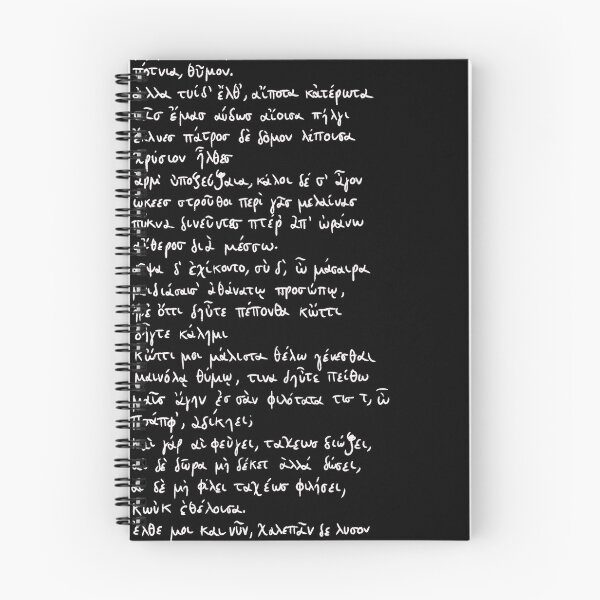 πότνια, θῦμον.
ἀλλα τυίδ' ἔλθ', αἴποτα κἀτέρωτα
τᾶσ ἔμασ αὔδωσ αἴοισα πήλγι
ἔκλυεσ πάτροσ δὲ δόμον λίποισα
χρύσιον ἦλθεσ
ἄρμ' ὐποζεύξαια, κάλοι δέ σ' ἆγον
ὤκεεσ στροῦθοι περὶ γᾶσ μελαίνασ
πύκνα δινεῦντεσ πτέρ' ἀπ' ὠράνω
αἴθεροσ διὰ μέσσω.
αἶψα δ' ἐχίκοντο, σὺ δ', ὦ μάσαιρα
μειδιάσασ' ἀθάνατῳ προσώπῳ,
ἤρε' ὄττι δηὖτε πέπονθα κὤττι
δηὖτε κάλημι
κὤττι μοι μάλιστα θέλω γένεσθαι
μαινόλᾳ θύμῳ, τινα δηὖτε πείθω
μαῖσ ἄγην ἐσ σὰν φιλότατα τισ τ, ὦ
Ψάπφ', ἀδίκηει;
καὶ γάρ αἰ φεύγει, ταχεωσ διώξει,
αἰ δὲ δῶρα μὴ δέκετ ἀλλά δώσει,
αἰ δὲ μὴ φίλει ταχέωσ φιλήσει,
κωὐκ ἐθέλοισα.
ἔλθε μοι και νῦν, χαλεπᾶν δε λυσον